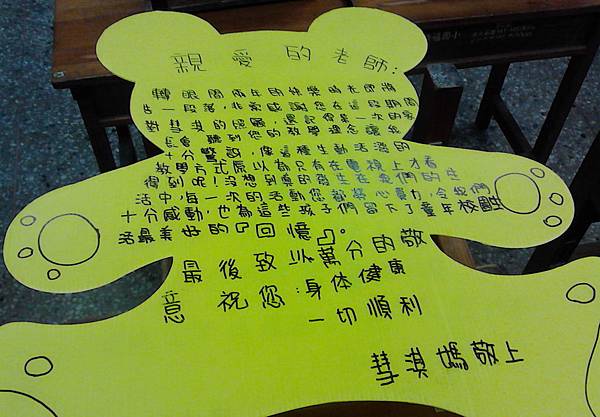 親愛的老師:
轉眼間兩年的快樂時光即將
告一段落,非常感謝您在這段期間
對彗淇的照顧,還記得第一次的家
長會,聽到您的教學理念讓我
十分驚訝,像這種生動活潑的
教學方式原以為只有在電視上才看
得到呢!沒想到真的發生在我們的生
活中,每一次的活動您都梭心費力,令我們
十分感動,也為這些孩子們留下了童年校園生
活最美好的回憶。
最後致以萬分的敬
意 祝您:身体健康
一切順利
彗淇媽敬上